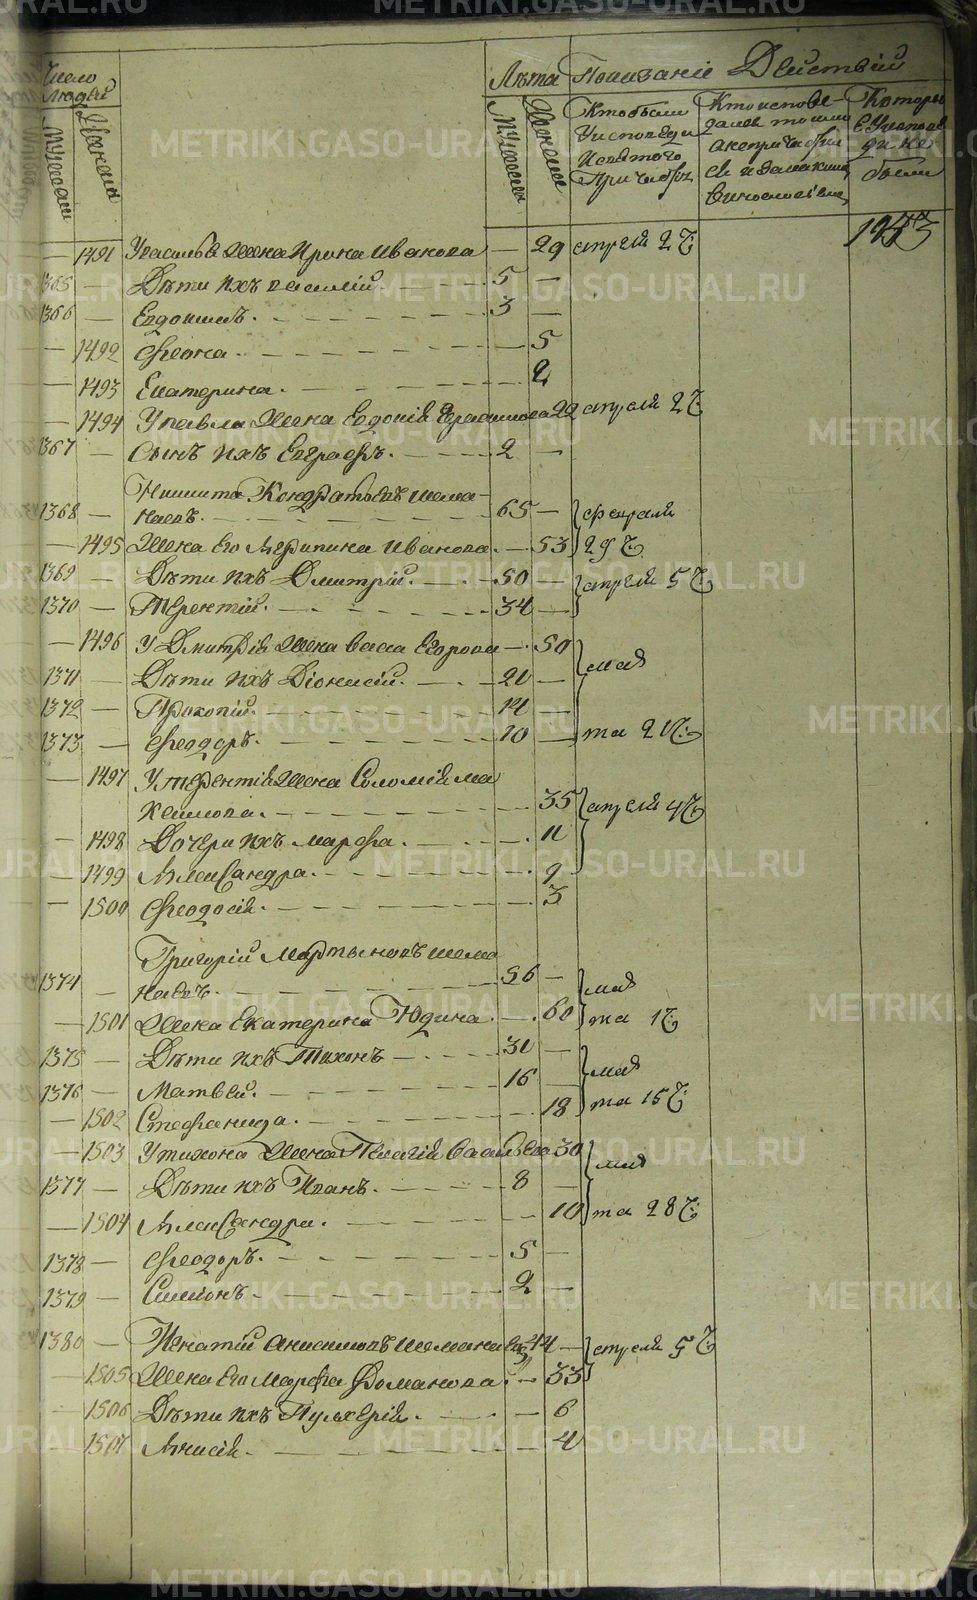 Число людей
Мужеска
Женска
Лѣта
Показаніе Действій
Мужеска
Женска
Кто были
у исповеди
и святого
Кто испове-
дался токмо
а не причастил
ся и за какими
Которые
у испове
ди не
были
— 1491 У Василья жена Ирина Иванова — 29 апреля 2 ч
1365 — Дѣти ихъ Василій. 5 —
1366 — Евдокимъ. 3 —
— 1492 Феона. — 5
— 1493 Екатерина. — 2
— 1494 У Павла жена Евдокія 22 апреля 2 ч
1367 — Сынъ ихъ Евграфъ. 2 —
Никита Кондратовъ шема-
1368 — наевъ. 65 — февраля
— 1495 Жена его Агрипина Иванова. — 53 29 ч
1369 — Дѣти ихъ Дмитрій. 50 — апреля 5 ч
1370 — Терентій. 34 —
— 1496 У Дмитрія жена Васа Егорова — 50
мая
1371 — Дѣти ихъ Діонисій. 21 —
1372 — Прокопій. 14 —
1373 — Феодоръ. 10 — та 21 ч
— 1497 У Терентія жена Соломія ма
Кимова. — 35 апреля 4 ч
— 1498 Дочери ихъ марфа. — 11
— 1499 Александра. — 9
— 1500 Феодосія. — 3
Григорій Мартыновъ шема
1374 — наевъ. 56 — мая
— 1501 Жена Екатерина Юдина. — 60 та 1 ч
1375 — Дѣти ихъ Тихонъ — 31 — мая
1376 — Матвей. 16 —
— 1502 Стефанида. — 18 та 15 ч
— 1503 У тихона жена Пелагія 30
мая
1377 — Дѣти ихъ Иванъ. 8 —
— 1504 Александра. — 10 та 28 ч
1378 — Феодоръ. 5 —
1379 — Симіонъ. 2 —
1380 — Игнатій Анисимовъ шеманаевъ 44 — апреля 5 ч
— 1505 Жена его Марфа Романова. — 33
— 1506 Дѣти ихъ Пульхерія. — 6
— 1507 Анисія. — 4
METRIKI.GASO-URAL.RU